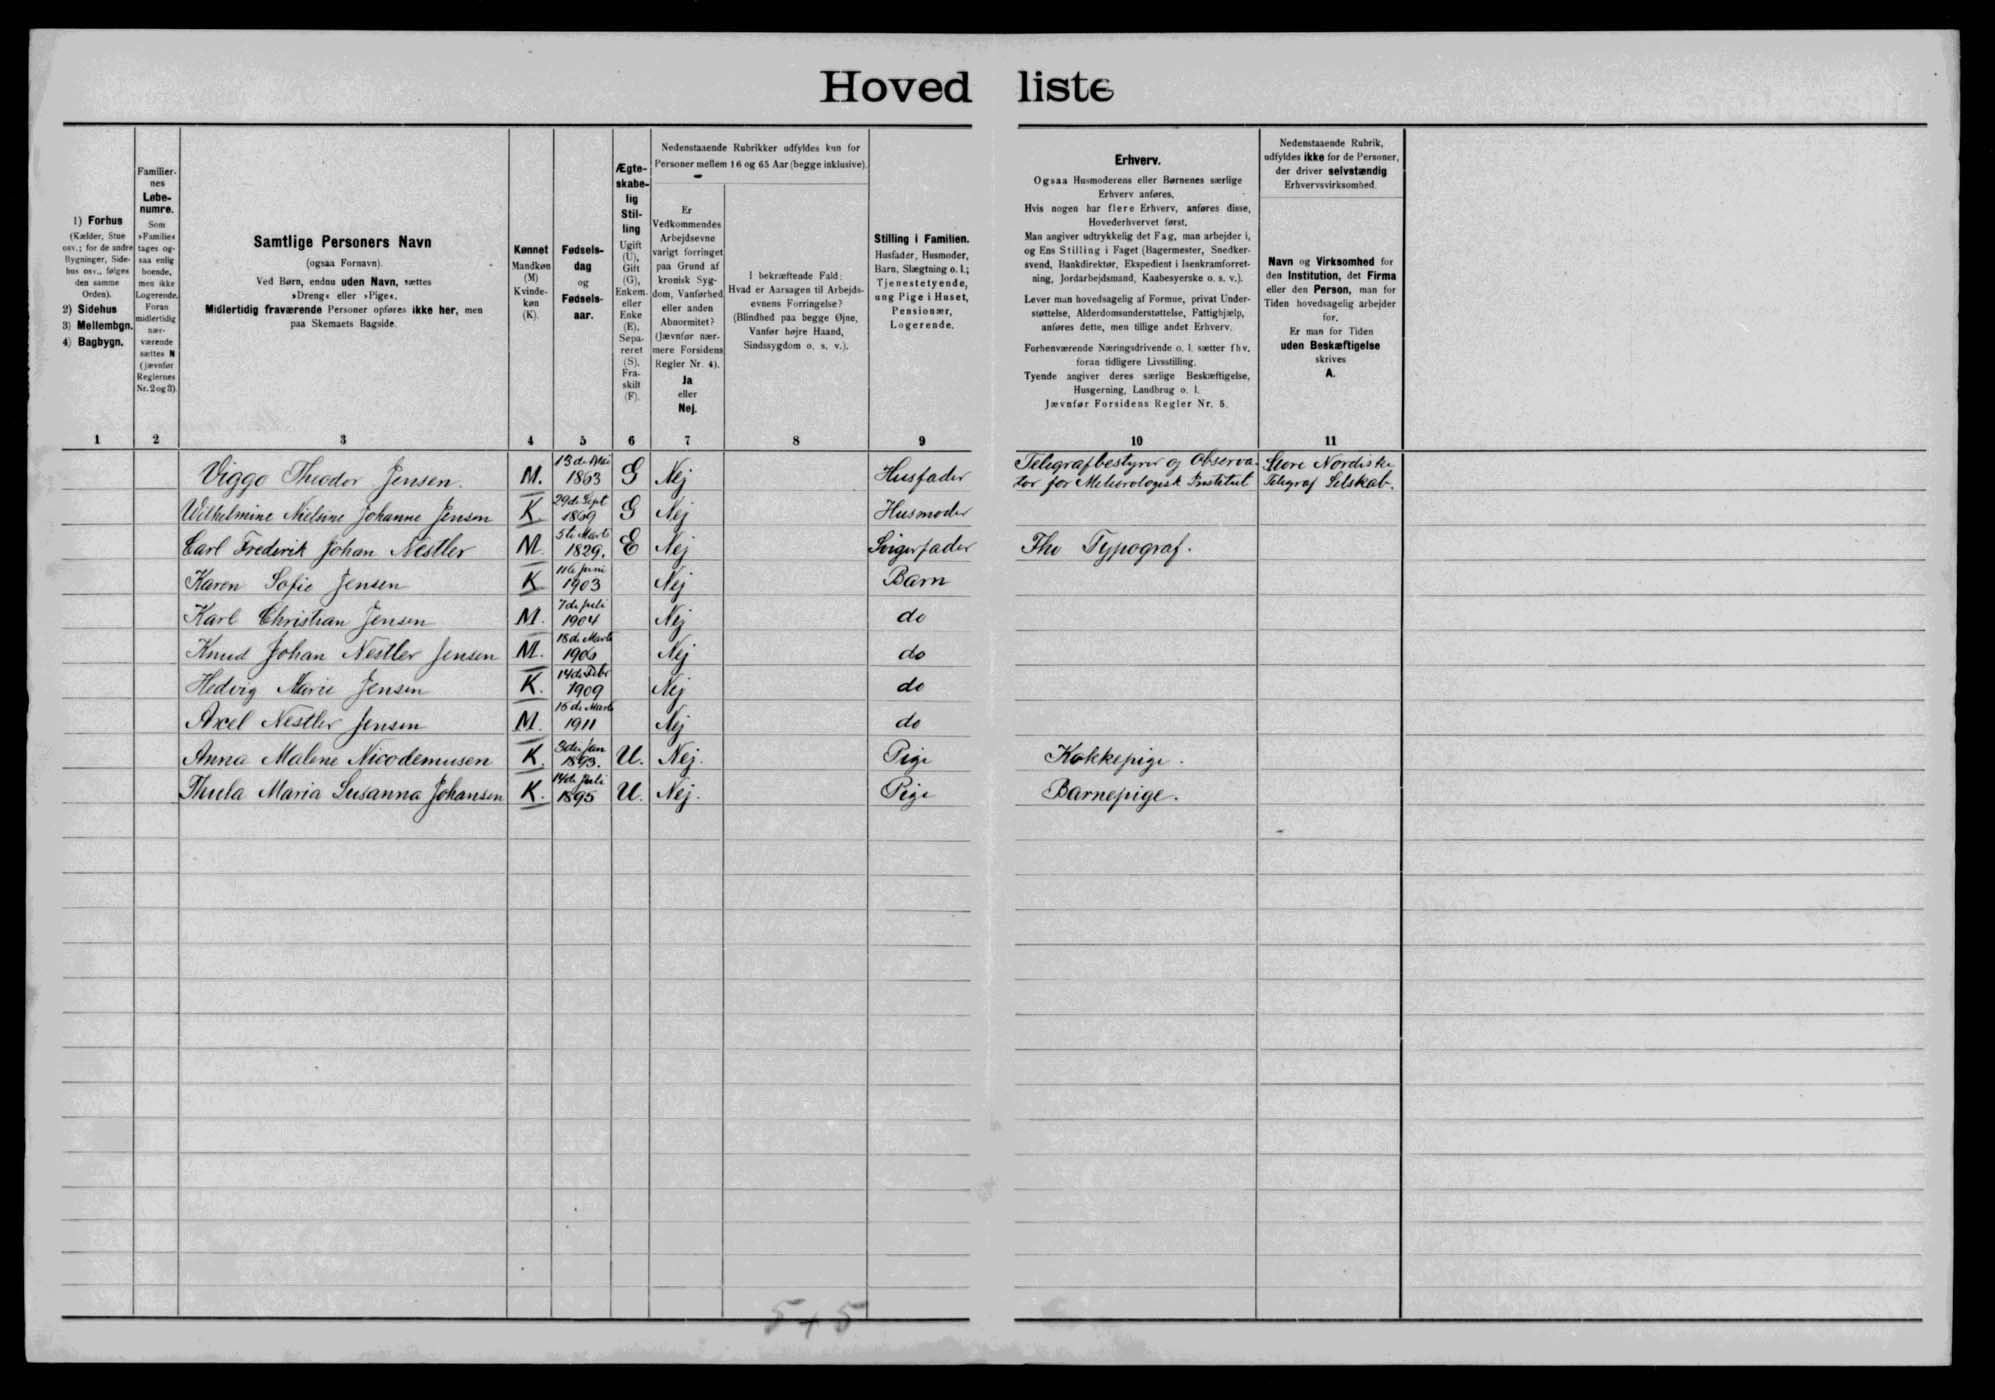 Hovedliste
1) Forhus
(Kælder, Stue
osv.; for de andre
Bygninger, Side-
hus osv., følges
den samme
Orden).
2) Sidehus
3) Mellembgn.
4) Bagbygn.
Familier-
nes
Løbe-
numre.
Som
»Familie«
tages og-
saa enlig
boende,
men ikke
Logerende.
Foran
midlertidig
nær-
værende
sættes N
(jævnfør
Reglernes
Nr. 2 og 3).
Samtlige Personers Navn
(ogsaa Fornavn).
Ved Børn, endnu uden Navn, sættes
»Dreng« eller »Pige«.
Midlertidig fraværende Personer opføres ikke her, men
paa Skemaets Bagside.
Kønnet
Mandkøn
(M)
Kvinde-
køn
(K).
Fødsels-
dag
og
Fødsels-
aar.
Ægte-
skabe-
lig
Stil-
ling
Ugift
(U),
Gift
(G),
Enkem.
eller
Enke
(E),
Sepa-
reret
(S),
Fra-
skilt
(F).
Nedenstaaende Rubrikker udfyldes kun for
Personer mellem 16 og 65 Aar (begge inklusive).
Er
Vedkommendes
Arbejdsevne
varigt forringet
paa Grund af
kronisk Syg-
dom, Vanførhed
eller anden
Abnormitet?
(Jævnfør nær-
mere Forsidens
Regler Nr. 4).
Ja
eller
Nej.
I bekræftende Fald:
Hvad er Aarsagen til Arbejds-
evnens Forringelse?
(Blindhed paa begge Øjne,
Vanfør højre Haand,
Sindssygdom o. s. v.).
Stilling i Familien.
Husfader, Husmoder,
Barn, Slægtning o. l.;
Tjenestetyende,
ung Pige i Huset,
Pensionær,
Logerende.
Erhverv.
Ogsaa Husmoderens eller Børnenes særlige
Erhverv anføres.
Hvis nogen har flere Erhverv, anføres disse,
Hovederhvervet først.
Man angiver udtrykkelig det Fag, man arbejder i,
og Ens Stilling i Faget (Bagermester, Snedker-
svend, Bankdirektør, Ekspedient i Isenkramforret-
ning, Jordarbejdsmand, Kaabesyerske o. s. v.).
Lever man hovedsagelig af Formue, privat Under-
støttelse, Alderdomsunderstøttelse, Fattighjælp,
anføres dette, men tillige andet Erhverv.
Forhenværende Næringsdrivende o. l. sætter fhv.
foran tidligere Livsstilling.
Tyende angiver deres særlige Beskæftigelse,
Husgerning, Landbrug o. l.
Jævnfør Forsidens Regler Nr. 5.
Nedenstaaende Rubrik,
udfyldes ikke for de Personer,
der driver selvstændig
Erhvervsvirksomhed.
Navn og Virksomhed for
den Institution, det Firma
eller den Person, man for
Tiden hovedsagelig arbejder
for.
Er man for Tiden
uden Beskæftigelse
skrives
A.
1 2 3 4 5 6 7 8 9 10 11
Viggo Theodor Jensen. M. 13de Mai 1863 G Nej Husfader Telegrafbestyrer og Observa- Store Nordiske
tor for Meteorologisk Institut Telegraf Selskab.
Wilhelmine Nielsine Johanne Jensen K 29de Sept 1869 G Nej Husmoder
Carl Frederik Johan Nestler M. 5te Marts 1829. E Nej Svigerfader Fhv Typograf.
Karen Sofie Jensen K 11te Juni 1903 Nej Barn
Karl Christian Jensen M. 7de Juli 1904 Nej do
Knud Johan Nestler Jensen M. 18de Marts 1906 Nej do
Hedvig Marie Jensen K. 14de Febr 1909 Nej do
Axel Nestler Jensen M. 15de Marts 1911 Nej do
Anna Malene Nicodemusen K. 3die Jan 1893. U. Nej. Pige Kokkepige.
Thula Maria Susanna Johansen K. 14de Juli 1895 U. Nej. Pige Barnepige.
5+5